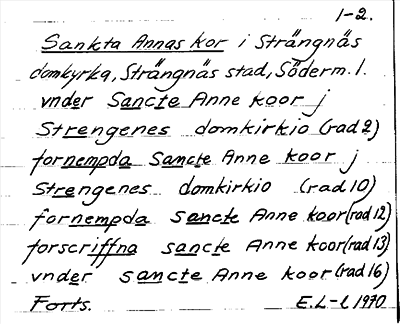 1-2.
Sankta Annas kor i Strängnäs
domkyrka, Strängnäs stad, Söderm. l.
vnder Sancte Anne koor j
Strengenes domkirkio (rad 2)
fornempda Sancte Anne koor j
Strengenes domkirkio (rad 10)
fornempda sancte Anne koor (rad 12)
forscriffna sancte Anne koor (rad 13)
vnder sancte Anne koor (rad 16)
Forts. E.L-l 1970